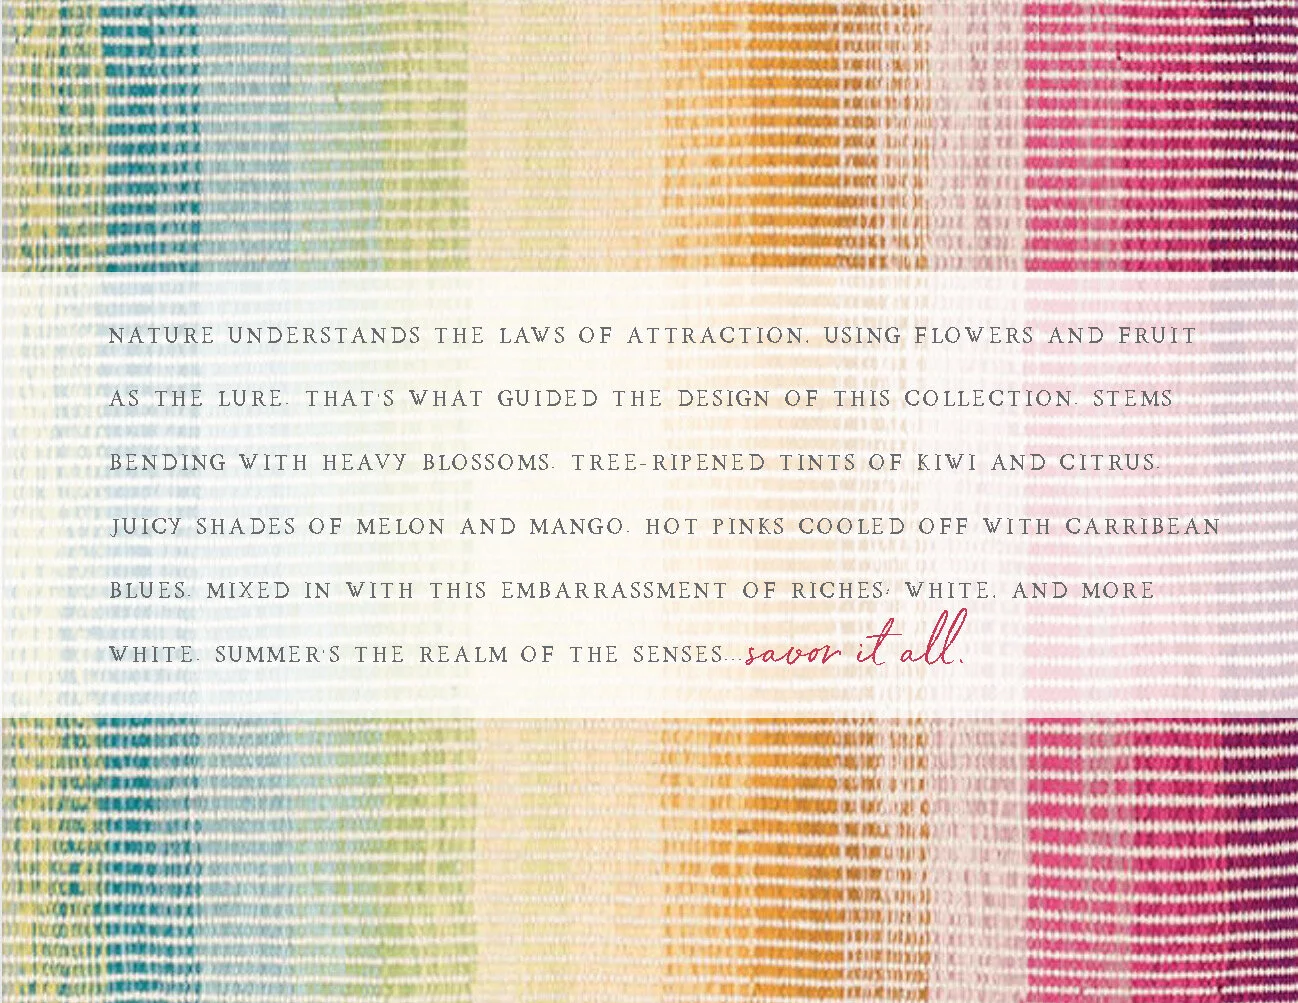 NATURE UNDERSTANDS THE LAWS OF ATTRACTION. USING FLOWERS AND FRUIT
AS THE LURE. THAT'S WHAT GUIDED THE DESIGN OF THIS COLLECTION. STEMS
BENDING WITH HEAVY BLOSSOMS. TREE-RIPENED TINTS OF KIWI AND CITRUS.
JUICY SHADES OF MELON AND MANGO. HOT PINKS COOLED OFF WITH CARRIBEAN
BLUES. MIXED IN WITH THIS EMBARRASSMENT OF RICHES, WHITE, AND MORE
WHITE. SUMMER'S THE REALM OF THE SENSES...savor it all.